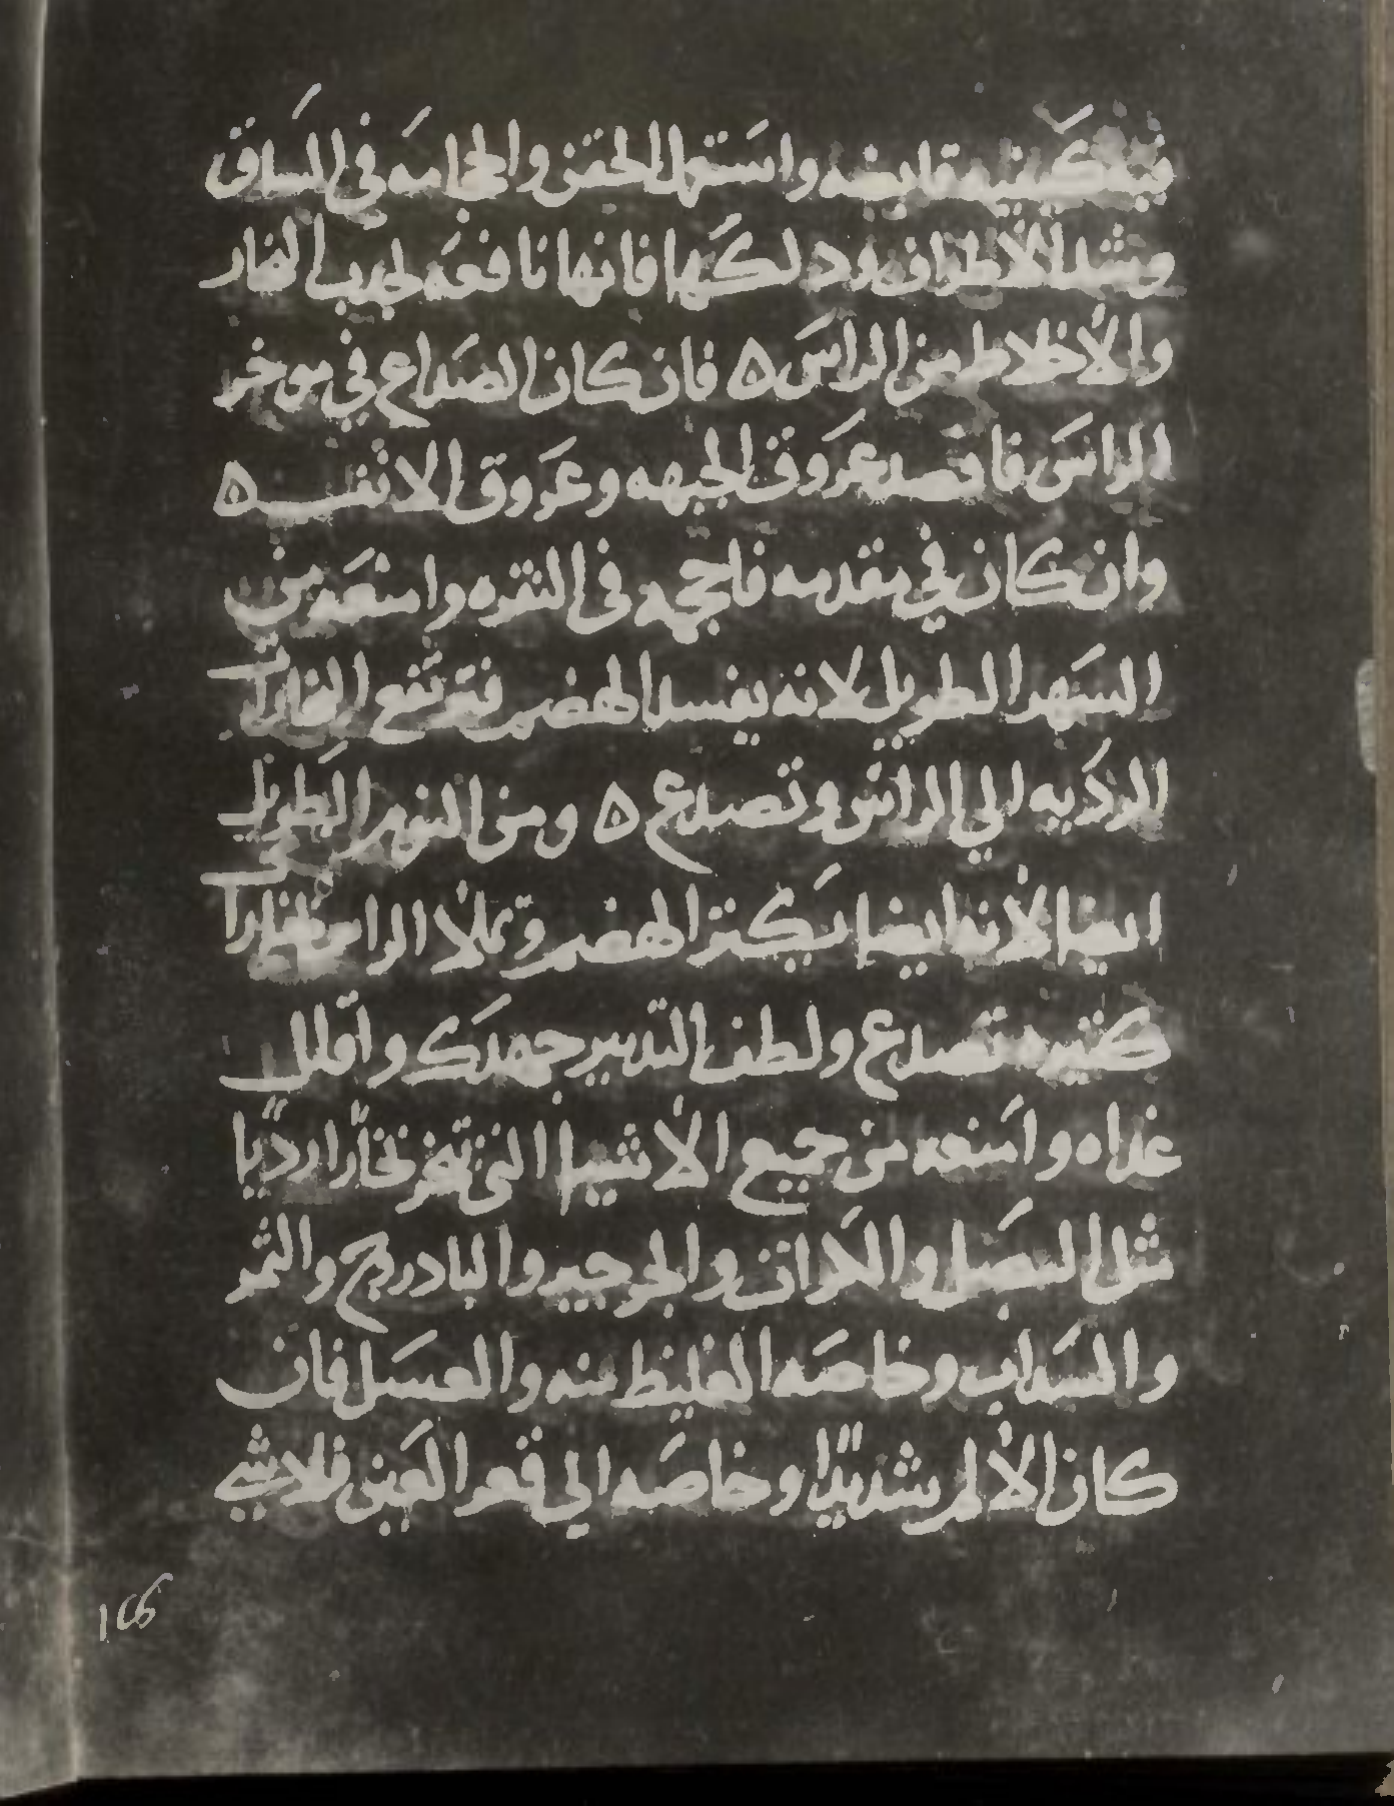 فيه كيفيه قابضه واستعمل الحقن والحجامه في الساق
وشد الاطراف ودلكها فانها نافعه لجدب البخار
والأخلاط من الراس ه فان كان الصداع في موخر
الراس فافصد عروق الجبهه وعروق الانف ه
وان كان في مقدمه فاحجمه في النقره وامنعه من
السهر الطويل لانه يفسد الهضم فترتفع البخارات
الرديه الي الراس وتصدع ه ومن النوم الطويل
ايضا لأنه ايضا يكثر الهضم وتملأ الراس بخارات
كثيره تصدع ولطف التدبير جهدك واقلل
غداه وامنعه من جميع الأشيا التي تبخر بخارًا رديًا
مثل البصل والكراث والجرجير والبادروج والتمر
والشراب وخاصه الغليظ منه والعسل فان
كان الألم شديدًا وخاصه الي قعر العين فلا شي